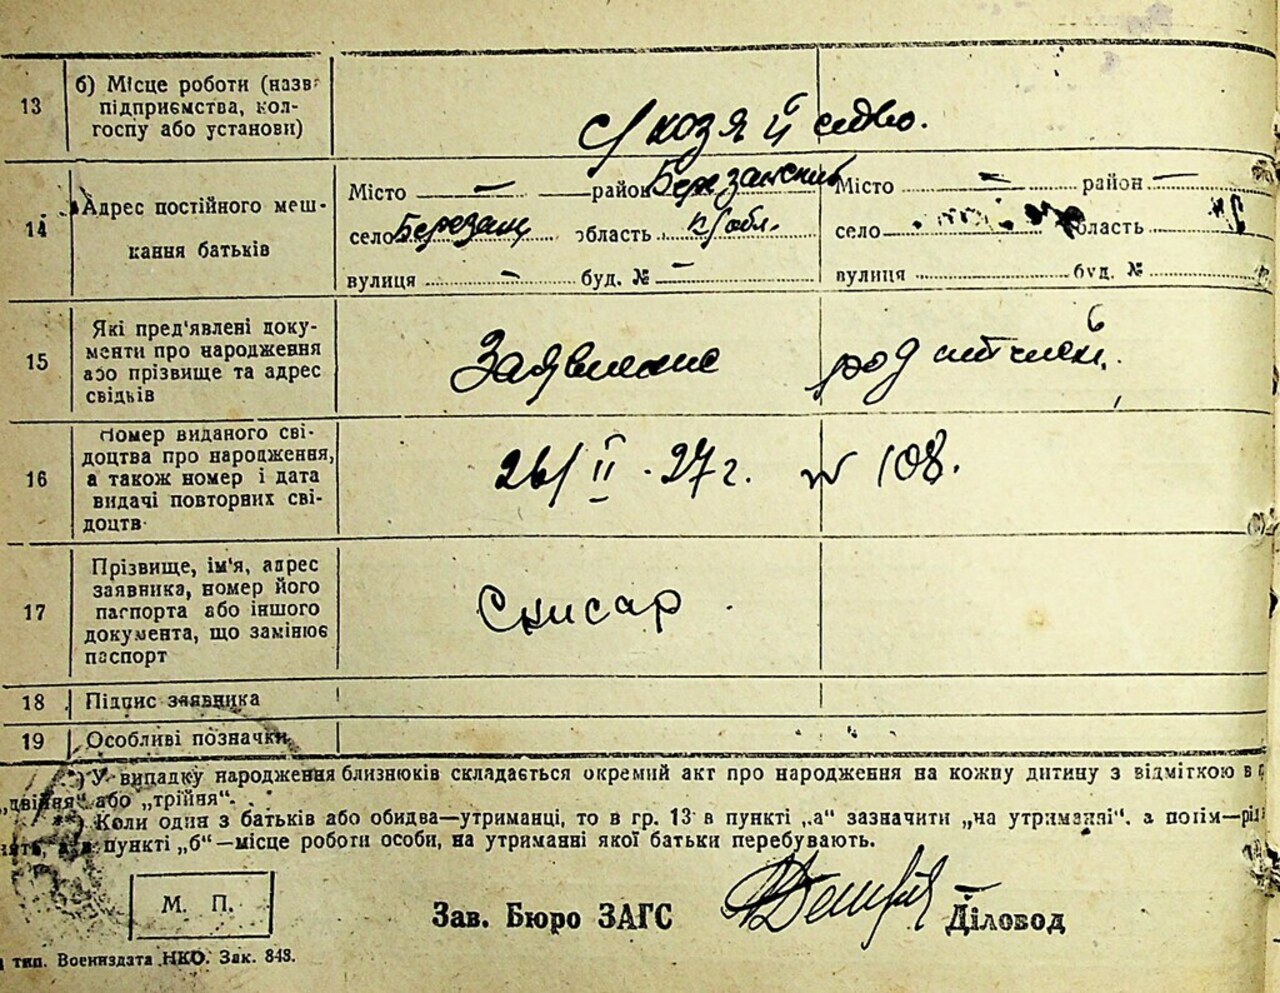 13 б) Місце роботи (назв
підприємства, кол-
госпу або установи)
с/хозяйство.
14 Адрес постійного меш-
кання батьків
Місто — район Березанский Місто — район —
село Березань область к/обл. село область
вулиця — буд. № — вулиця буд. №
15 Які пред'явлені доку-
менти про народження
або прізвище та адрес
свідків
Заявление родителей.
16 Номер виданого сві-
доцтва про народження,
а також номер і дата
видачі повторних сві-
доцтв
26/II-27г. № 108.
17 Прізвище, ім'я, адрес
заявника, номер його
паспорта або іншого
документа, що замінює
паспорт
18 Підпис заявника
19 Особливі позначки
*) У випадку народження близнюків складається окремий акт про народження на кожну дитину з відміткою в
„двійня“ або „трійня“.
**) Коли один з батьків або обидва—утриманці, то в гр. 13 в пункті „а“ зазначити „на утриманні“, а потім—
пункті „б“—місце роботи особи, на утриманні якої батьки перебувають.
М. П.
Зав. Бюро ЗАГС Діловод
тип. Воениздата НКО. Зак. 843.